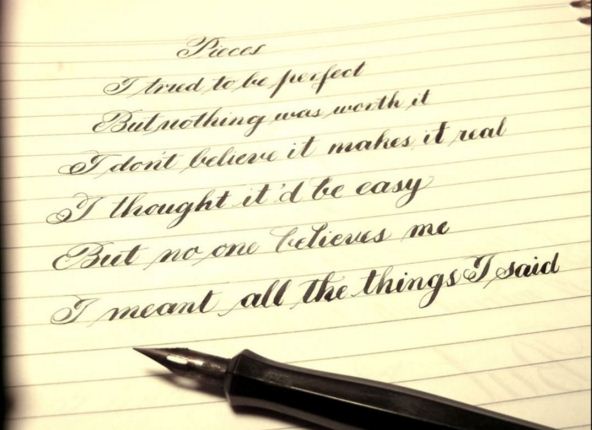 Pieces
I tried to be perfect
But nothing was worth it
I don't believe it makes it real
I thought it'd be easy
But no one believes me
I meant all the things I said